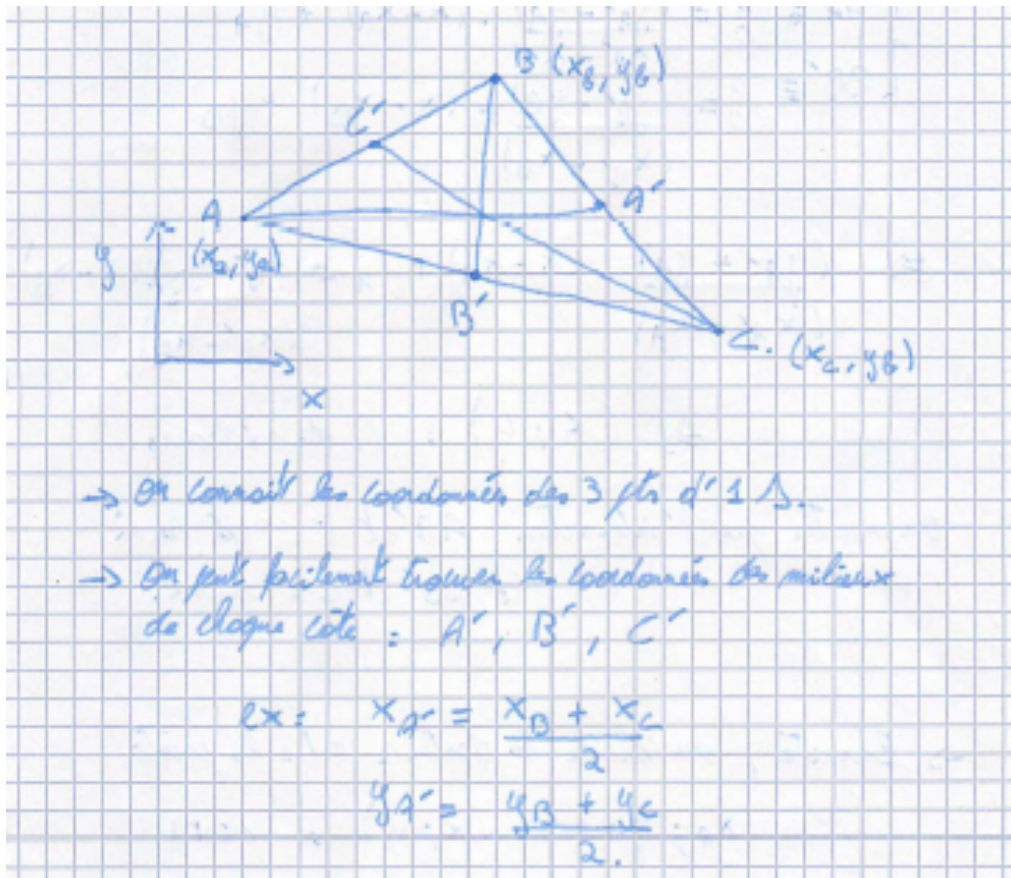 B (x_b, y_b)
C'
A'
A
(x_a, y_a)
y
B'
C. (x_c, y_b)
x
→ on connait les coordonnées des 3 pts d'1 Δ.
→ on peut facilement trouver les coordonnées des milieux
de chaque côté : A', B', C'
ex: x_A' = x_B + x_C
2
y_A' = y_B + y_C
2.